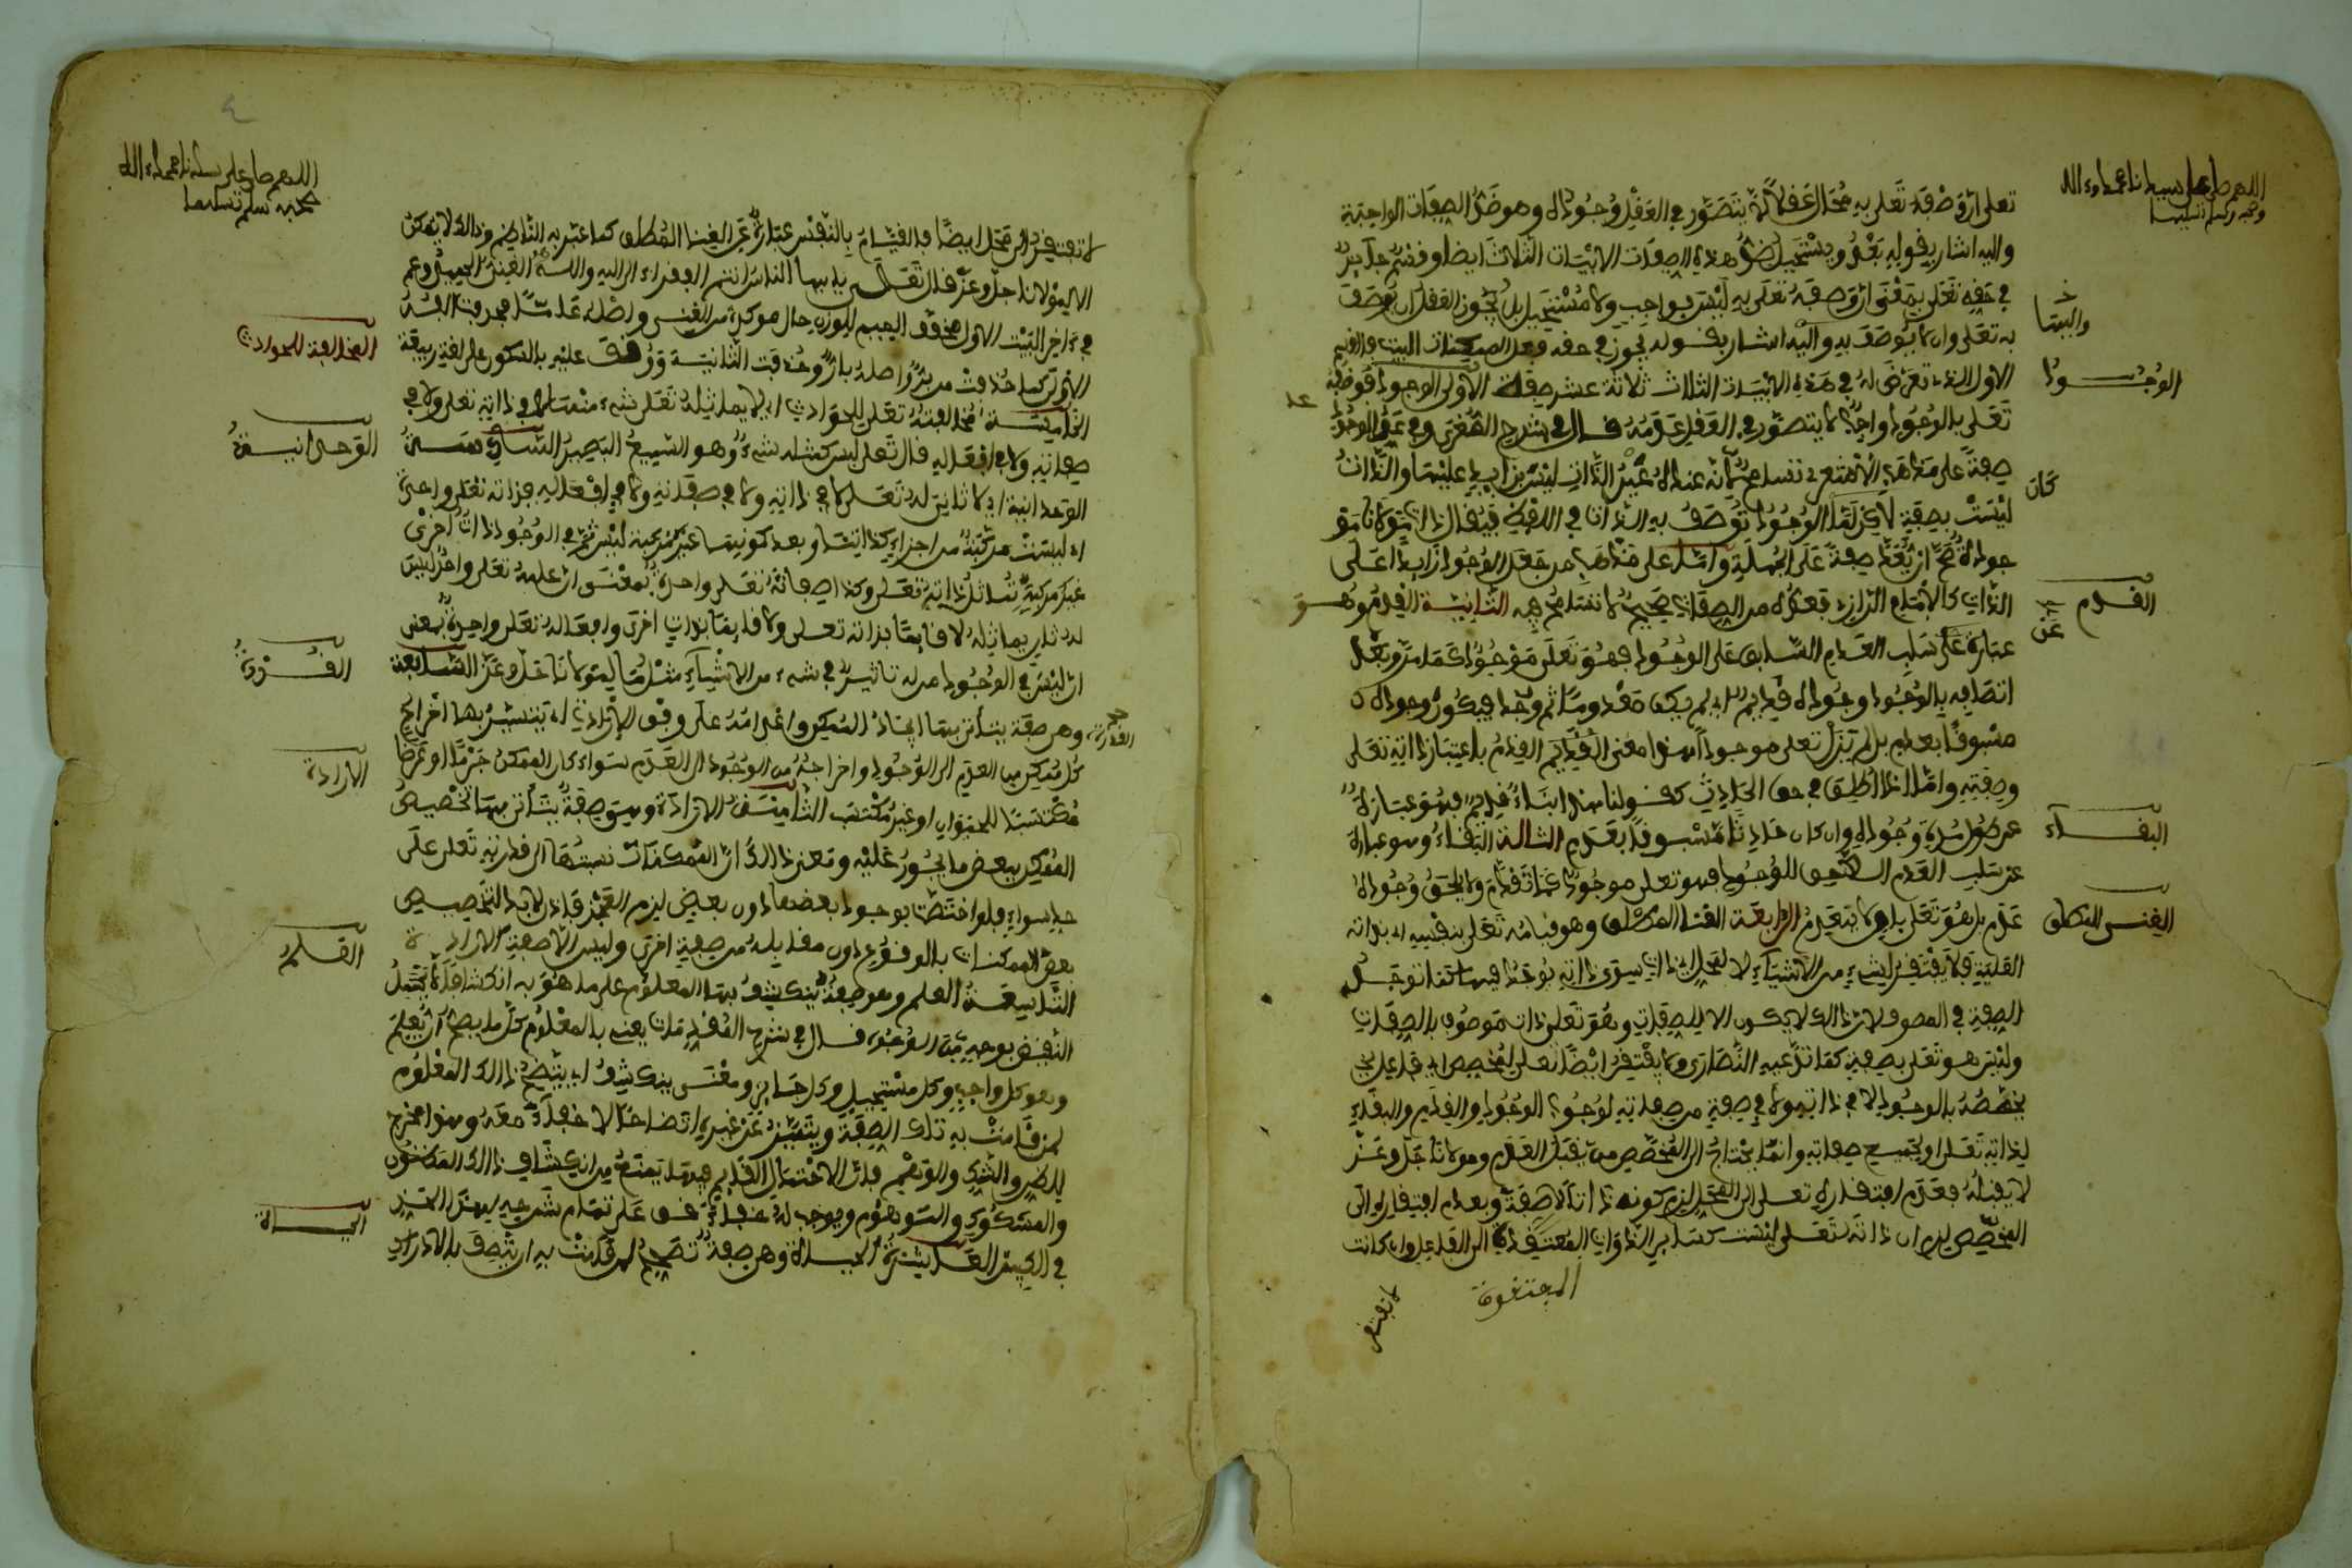 اللهم صل على سيدنا محمد وءاله
وصحبه وسلم تسليما
تعلى ان وصفه تعلى به محال عقلا لانه يتصور في العقل وجوده وهو ضد الصفات الواجبة
واليه اشار بقوله بعد ويستحيل ضد هذه الصفات الابيات الثلاث ايضا وقسم جايز
في حقه تعلى بمعنى ان وصفه تعلى به ليس بواجب ولا مستحيل بل يجوز العقل ان يوصف
به تعلى وان لا يوصف به واليه اشار بقوله يجوز في حقه فعل الممكنات البيت فالقسم
والبقا
الوجود
الاول الذي تعرض له في هذه الابيات الثلاث ثلاثة عشر صفة الاولى الوجود فوصفه
تعلى بالوجود واجب لا يتصور في العقل عدمه قال في شرح الصغرى وفي عد الوجود
صفة على مذهب الاشعري تسامح لانه عنده غير الذات ليس بزايد عليها والذات
كان
ليست بصفة لاكن لما الوجود توصف به الذات في اللفظ فيقال ذات مولانا مو
جودة صح ان يعد صفة على الجملة واما على مذهب من جعل الوجود زايدا على
الذات كالامام الرازي فعده من الصفات صحيح لا تسامح فيه الثانية القدم وهو
القدم
عن
عبارة على سلب العدم السابق على الوجود فهو تعلى موجود كما مر وبعد
اتصافه بالوجود وجوده قديم اي لم يكن معدوما ثم وجد فيكون وجوده
مسبوقا بعدم بل لم يزل تعلى موجودا هذا معنى القديم القدم باعتبار ذاته تعلى
وصفته واما اذا اطلق في حق الحادث كقولنا هذا بناء قديم فهو عبارة
عن طول مدة وجوده وان كان حادثا مسبوقا بعدم الثالثة البقاء وهو عبارة
البقاء
عن سلب العدم اللاحق للوجود فهو تعلى موجود كما تقدم ولا يلحق وجوده
عدم بل هو تعلى باق لا ينعدم الرابعة الغنا المطلق وهو قيامه تعلى بنفسه اي بذاته
الغنى المطلق
العلية فلا يفتقر لشيء من الاشياء لا لمحل اي ذات سوى ذاته يوجد فيها كما توجد
الصفة في الموصوف لان ذالك لا يكون الا للصفات وهو تعلى ذات موصوف بالصفات
وليس هو تعلى بصفة كما تدعيه النصارى ولا يفتقر ايضا تعلى لمخصص اي فاعل
يخصصه بالوجود لا في ذاته ولا في صفة من صفاته لوجوب الوجود والقدم والبقاء
لذاته تعلى ولجميع صفاته وانما يحتاج الى المخصص من يقبل العدم ومولانا جل وعز
لا يقبله فعدم افتقاره تعلى الى المحل لزم كونه ذاتا لا صفة وبعدم افتقاره الى
المخصص لزم ان ذاته تعلى ليست كساير الذوات المفتقرة الى الفاعل وان كانت
لا تفتقر
اللهم صل على سيدنا محمد وءاله
وصحبه وسلم تسليما
لا تفتقر الى محل ايضا فالقيام بالنفس عبارة عن الغنا المطلق كما عبر به الناظم وذالك لا يمكن
الا لمولانا جل وعز قال تعلى يا ايها الناس انتم الفقراء الى الله والله هو الغني الحميد وعم
في ءاخر البيت الاول مخفف الميم للوزن حال موكدة من الغنى واصله عاما فحذفت الفه
الاولى كما حذفت من بر واصله بار وحذفت الثانية ووقف عليه بالسكون على لغة ربيعة
المخالفة للحوادث
الخامسة مخالفته تعلى للحوادث اي لا يماثله تعلى شيء منها لا في ذاته تعلى ولا في
صفاته ولا في افعاله قال تعلى ليس كمثله شيء وهو السميع البصير السادسة
الوحدانية
الوحدانية اي لا ثاني له تعلى لا في ذاته ولا في صفاته ولا في افعاله فذاته تعلى واحدة
اي ليست مركبة من اجزاء كذاتنا وبعد كونها غير مركبة ليس ثم في الوجود ذات اخرى
غير مركبة تماثل ذاته تعلى وكذا صفاته تعلى واحدة بمعنى ان علمه تعلى واحد ليس
له ثان يماثله لا قايما بذاته تعلى ولا قايما بذات اخرى وافعاله تعلى واحدة بمعنى
ان ليس في الوجود من له تاثير في شيء من الاشياء مثل ما لمولانا جل وعز السابعة
القدرة
القدرة وهي صفة يتأتى بها ايجاد الممكن واعدامه على وفق الارادة اي يتيسر بها اخراج
كل ممكن من العدم الى الوجود واخراجه من الوجود الى العدم سواء كان الممكن جرما او عرضا
الارادة
مكتسبا للحيوان او غير مكتسب الثامنة الارادة وهي صفة يتأتى بها تخصيص
الممكن ببعض ما يجوز عليه ومعنى ذالك ان الممكنات نسبتها الى قدرته تعلى على
حد سواء فلو اختصت بوجود بعضها دون بعض لزم العجز فاذا لا بد لتخصيص
بعض الممكنات بالوقوع دون مقابله من صفة اخرى وليس الا صفة الارادة
العلم
التاسعة العلم وهو صفة ينكشف بها المعلوم على ما هو به انكشافا لا يحتمل
النقيض بوجه من الوجوه قال في شرح المقدمات يعني بالمعلوم كل ما يصح ان يعلم
وهو كل واجب وكل مستحيل وكل جايز ومعنى ينكشف اي يتضح ذالك المعلوم
لمن قامت به تلك الصفة ويتميز عن غيره اتضاحا لا خفاء معه وهذا مخرج
للظن والشك والوهم فان الاحتمال القديم فيها يمنع من انكشاف ذالك المظنون
والمشكوك والموهوم ويوجب له خفاء قف على تمام شرحه لهذا الحد
في الكبرى العاشرة الحياة وهي صفة تصحح لمن قامت به ان يتصف بالادراك
الحياة